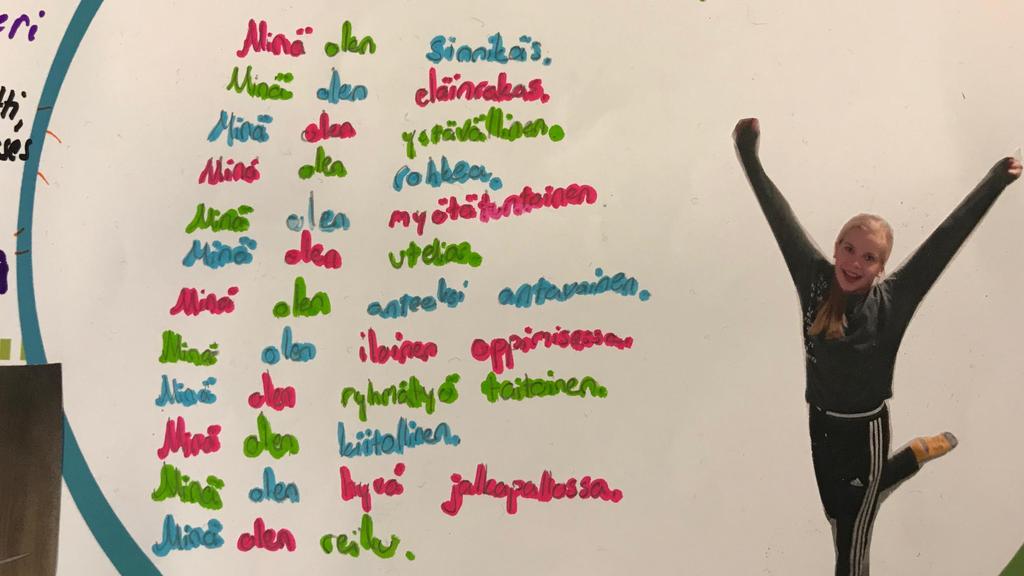 eri
Minä olen Sinnikäs.
Minä olen eläinrakas.
Minä olen ystävällinen.
Minä olen rohkea.
Minä olen myötätuntoinen
Minä olen utelias.
Minä olen anteeksi antavainen.
Minä olen iloinen oppimisessa.
Minä olen ryhmätyö taitoinen.
Minä olen kiitollinen.
Minä olen hyvä jalkapallossa.
Minä olen reilu.